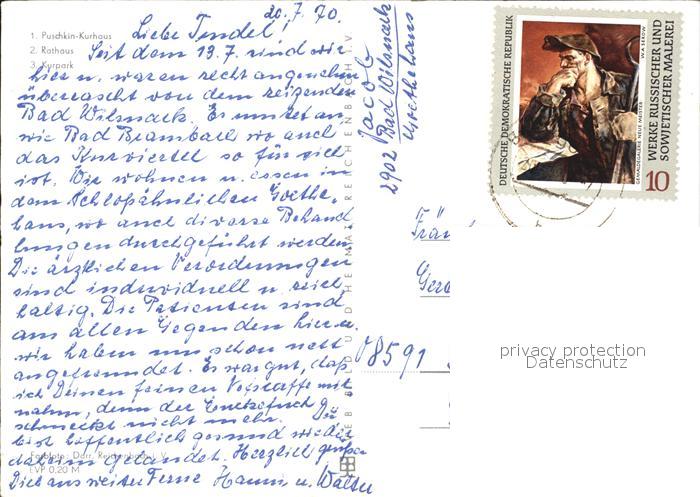 20.7.70.
Liebe Trudel!
1. Puschkin-Kurhaus
2. Rathaus
3. Kurpark
Seit dem 19.7. sind wir
hier u. waren recht angenehm
überrascht von dem reizenden
Bad Wilsnack. Es mutet an
wie Bad Brambach, wo auch
das Kurviertel so für sich
ist. Wir wohnen u. essen in
dem Schloßähnlichen Goethe-
haus, wo auch diverse Behand
lungen durchgeführt werden.
Die ärztlichen Verordnungen
sind individuell u. reich
haltig. Die Patienten sind
aus allen Gegenden hier u.
wir haben uns schon nett
angefreundet. Es war gut, daß
ich Deinen feinen
nahm, denn der
schmeckt nicht mehr. Du
bist hoffentlich gesund wieder
daheim gelandet. Herzlich grüßen
Dich aus weiter Ferne Hanni u. Walter
Farbfoto: Darr, Reichenbach i. V.
EVP 0,20 M
VEB BILD UND HEIMAT REICHENBACH I. V.
Jacob
Bad Wilsnack
Goethehaus
2902
DEUTSCHE DEMOKRATISCHE REPUBLIK
WERKE RUSSISCHER UND
SOWJETISCHER MALEREI
GEMÄLDEGALERIE NEUE MEISTER
10
Frän
Gera
8591
privacy protection
Datenschutz